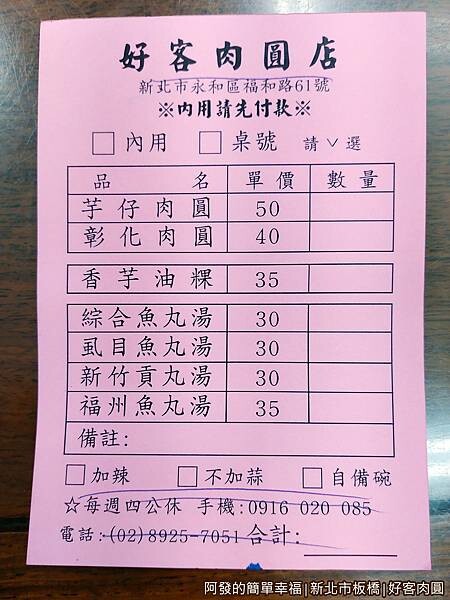 好客肉圓店
新北市永和區福和路61號
※內用請先付款※
□內用 □桌號 請∨選
品名 單價 數量
芋仔肉圓 50
彰化肉圓 40
香芋油粿 35
綜合魚丸湯 30
虱目魚丸湯 30
新竹貢丸湯 30
福州魚丸湯 35
備註:
□加辣 □不加蒜 □自備碗
☆每週四公休 手機:0916 020 085
電話:(02)8925-7051 合計:
阿發的簡單幸福|新北市板橋|好客肉圓